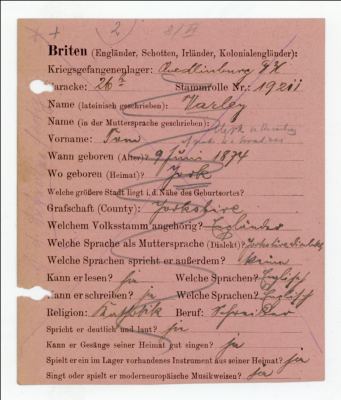 (2)
Briten (Engländer, Schotten, Irländer, Kolonialengländer):
Kriegsgefangenenlager: Quedlinburg
Baracke: 26a Stammrolle Nr.:
Name (lateinisch geschrieben): Varley
Name (in der Muttersprache geschrieben):
Vorname:
Wann geboren (Alter)? 9 Juni 1874
Wo geboren (Heimat)? York
Welche größere Stadt liegt i.d. Nähe des Geburtsortes?
Grafschaft (County): Yorkshire
Welchem Volksstamm angehörig? Engländer
Welche Sprache als Muttersprache (Dialekt)? Yorkshiredialekt
Welche Sprachen spricht er außerdem? keine
Kann er lesen? ja Welche Sprachen? Englisch
Kann er schreiben? ja Welche Sprachen? Englisch
Religion: Katholik Beruf: Schreiber
Spricht er deutlich und laut? ja
Kann er Gesänge seiner Heimat gut singen? ja
Spielt er ein im Lager vorhandenes Instrument aus seiner Heimat? ja
Singt oder spielt er moderneuropäische Musikweizen? ja